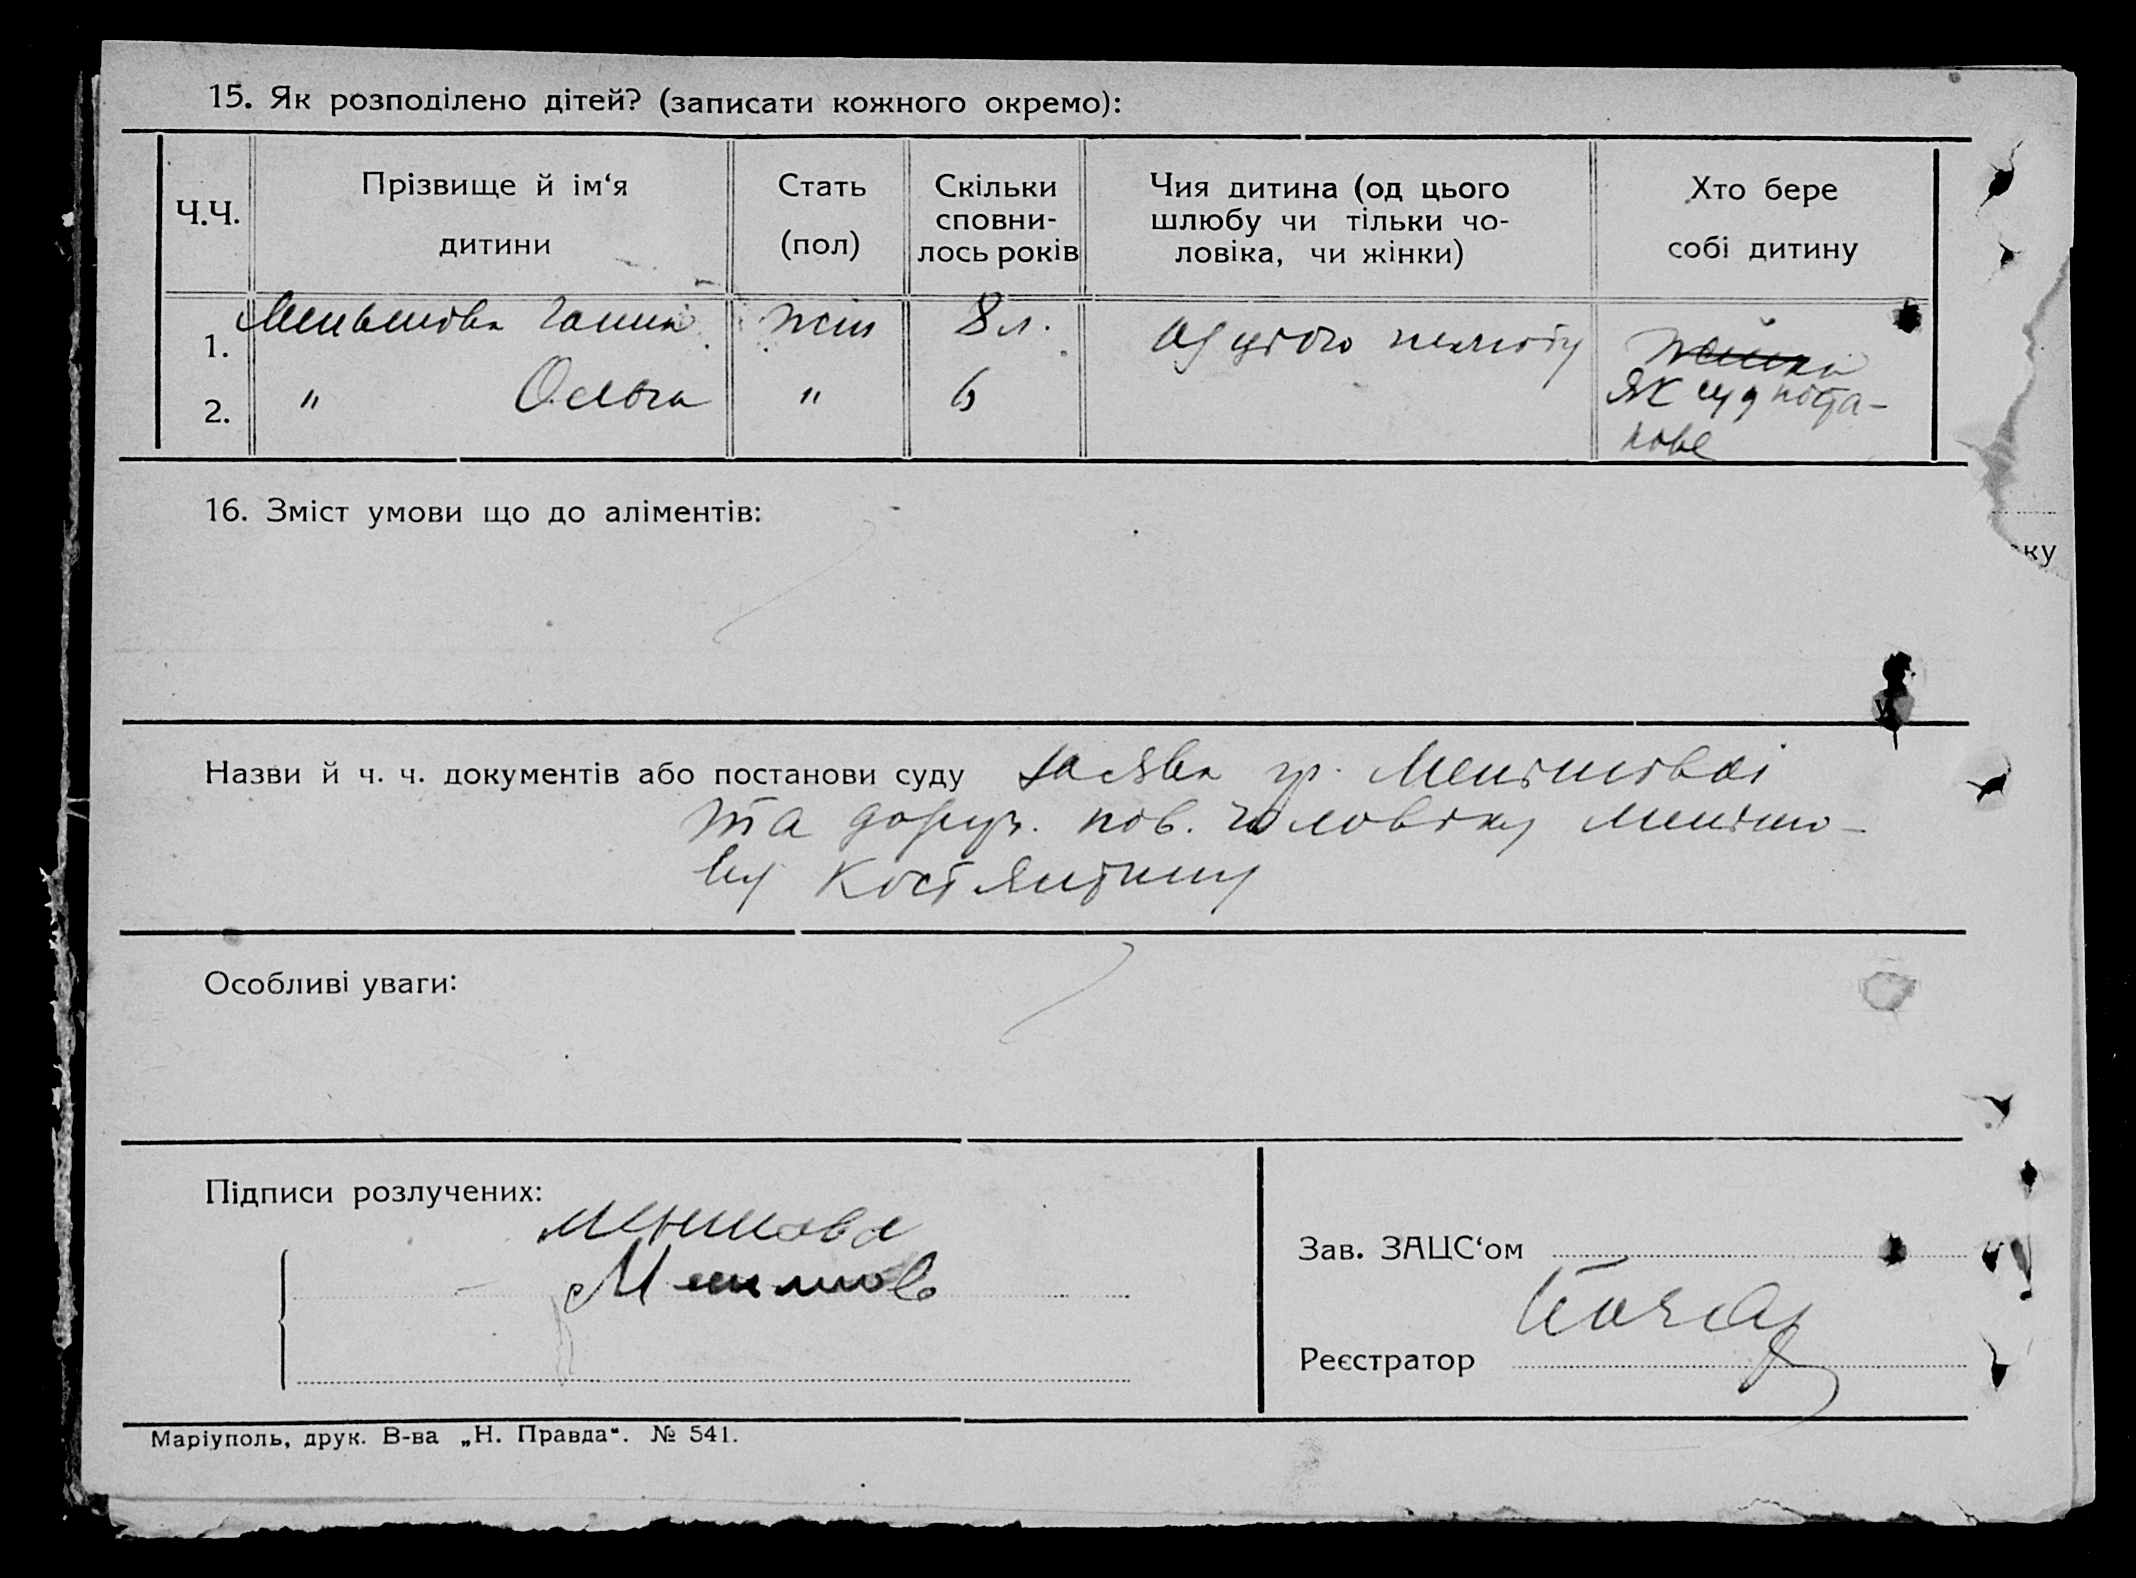 15. Як розподілено дітей? (записати кожного окремо):
Ч.Ч.
Прізвище й ім‘я
дитини
Стать
(пол)
Скільки
сповни-
лось років
Чия дитина (од цього
шлюбу чи тільки чо-
ловіка, чи жінки)
Хто бере
собі дитину
1. Меньшова Ганна жін 8 л. Од цього шлюбу жінка
2. " Ольга " 6 як суд поста-
нове
16. Зміст умови що до аліментів:
ку
Назви й ч. ч. документів або постанови суду заява гр. Меньшової
та доруч. пов. чоловіку Меньшо-
ву Костянтину
Особливі уваги:
Підписи розлучених:
Меншова
Меншов
Зав. ЗАЦС‘ом
Реєстратор
Маріуполь, друк. В-ва „Н. Правда“. № 541.